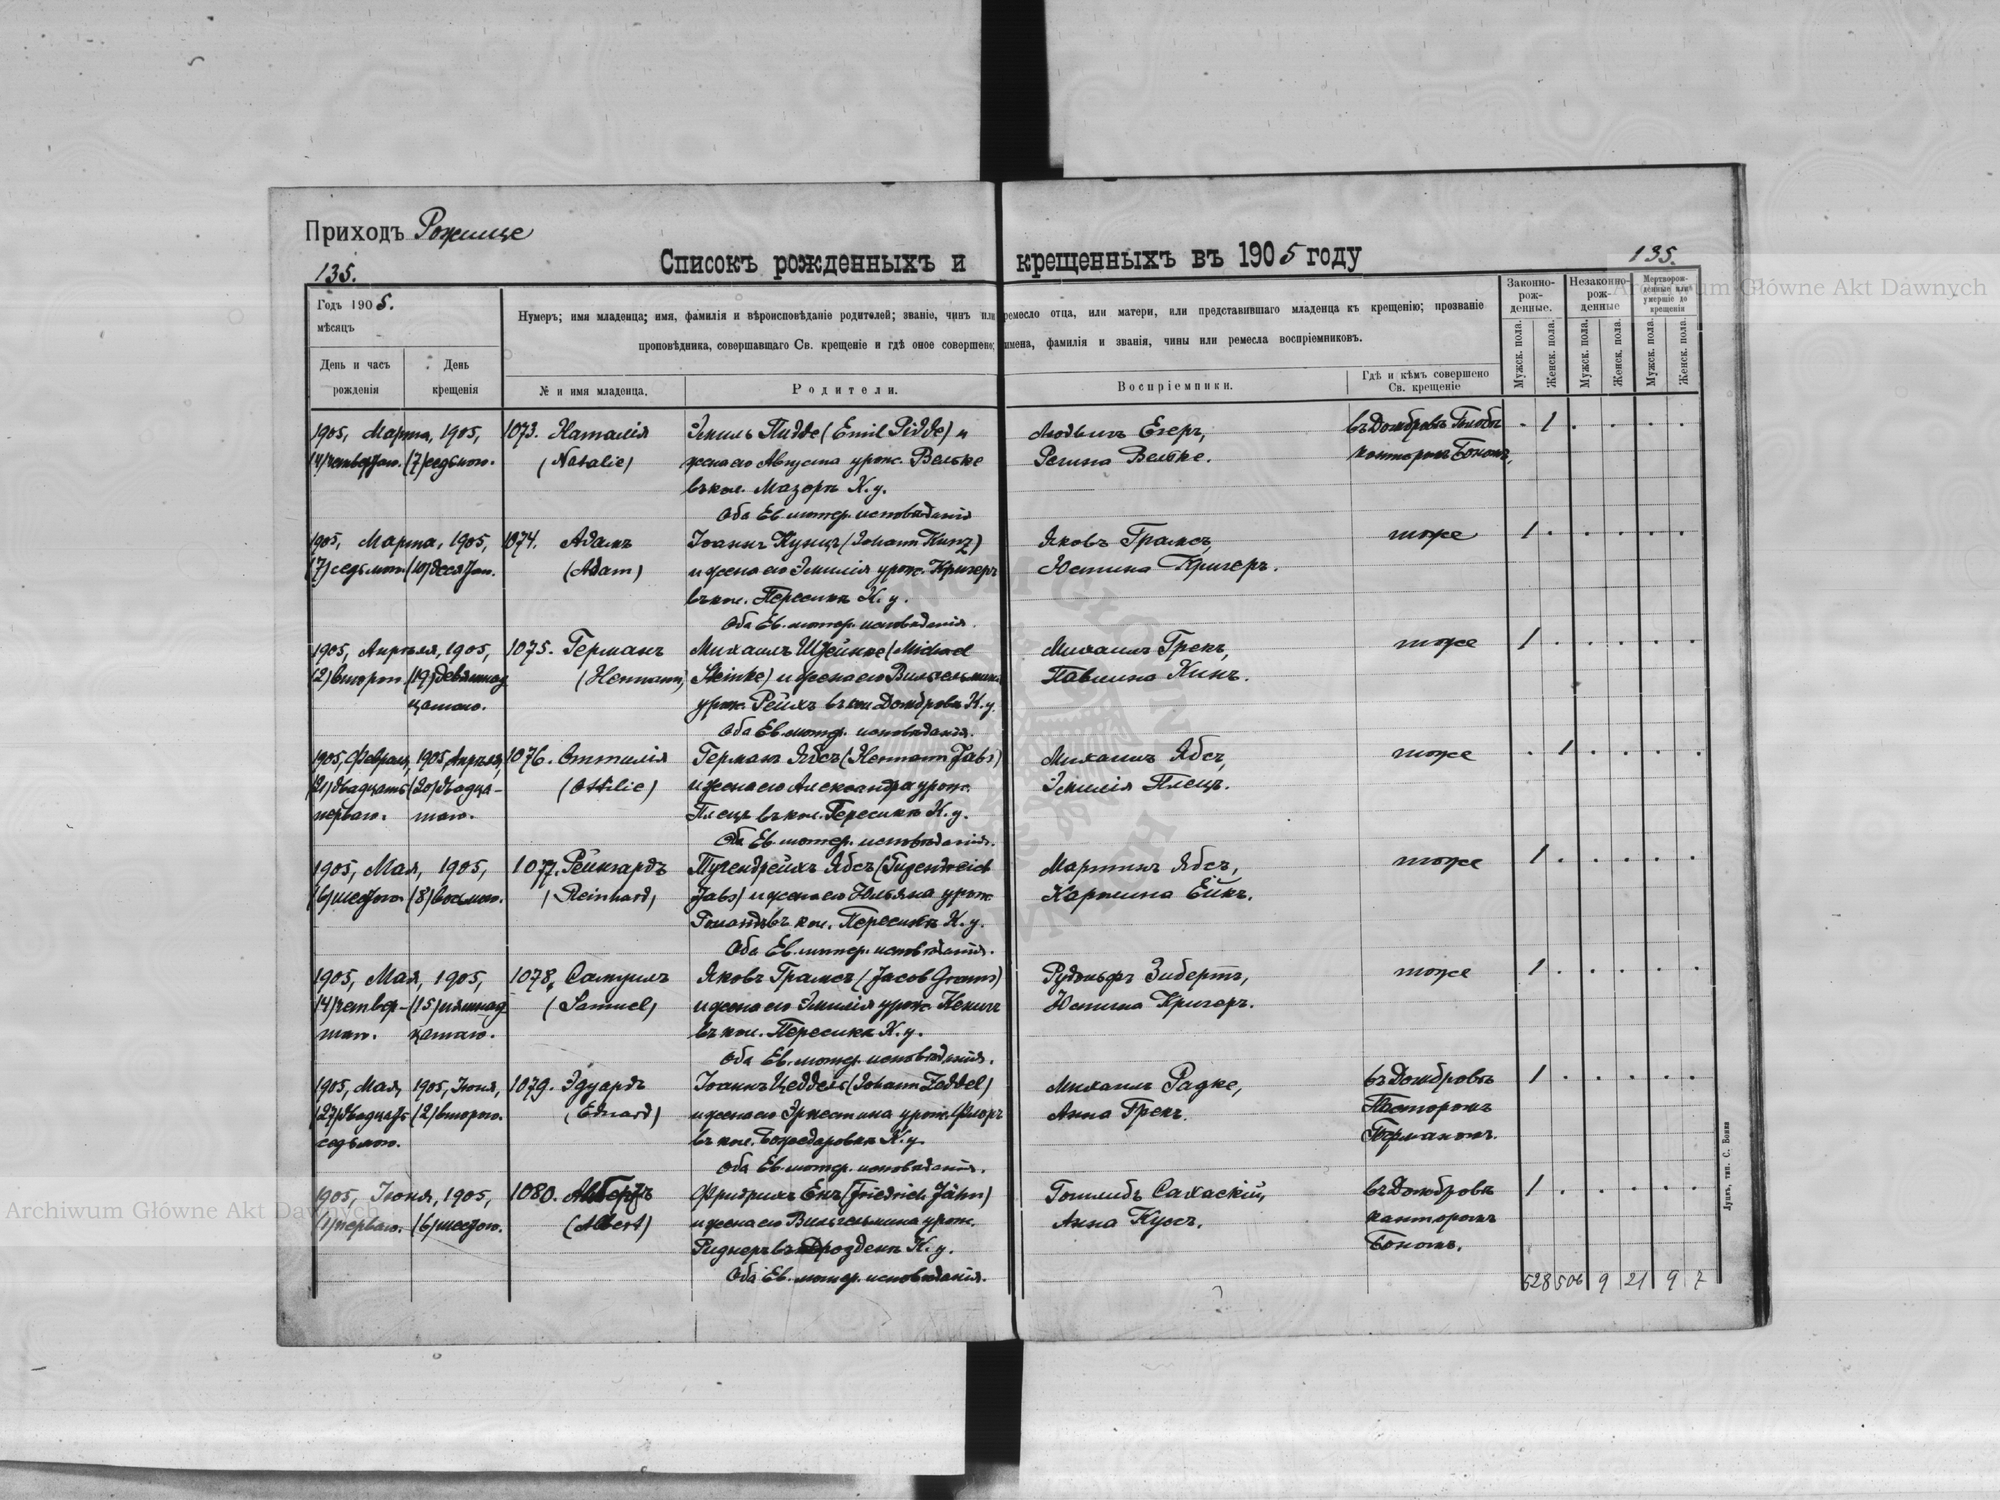 Приходъ Рожище
Списокъ рожденныхъ и крещенныхъ въ 1905 году
135.
135.
Годъ 1905.
мѣсяцъ
День и часъ рожденія
День крещенія
Нумеръ; имя младенца; имя, фамилія и вѣроисповѣданіе родителей; званіе, чинъ или ремесло отца, или матери, или представившаго младенца къ крещенію; прозваніе
проповѣдника, совершавшаго Св. крещеніе и гдѣ оное совершено; имена, фамилія и званія, чины или ремесла воспріемниковъ.
№ и имя младенца.
Родители.
Воспріемники.
Гдѣ и кѣмъ совершено Св. крещеніе
Законно-рож-денные.
Незаконно-рож-денные
Мертворож-денные или умершіе до крещенія
Мужск. пола.
Женск. пола.
Мужск. пола.
Женск. пола.
Мужск. пола.
Женск. пола.
1905, Марта, 1905, 1073. Наталія Эмиль Пидде (Emil Pidde) и Людвигъ Егеръ, въ Домбровѣ 1
(4) четвертаго. (7) седьмого. (Natalie) жена его Августа урож. Вельке Регина Вельке. канторомъ Бономъ,
въ кол. Мазоръ К. у.
Оба Ев. лютер. исповѣданія
1905, Марта, 1905, 1074. Адамъ Іоаннъ Кунцъ (Johann Kunz) Яковъ Грамсъ, тоже 1
(7) седьмого (10) десятаго. (Adam) и жена его Эмилія урож. Кригеръ Юстина Кригеръ.
въ кол. Пересика К. у.
Оба Ев. лютер. исповѣданія.
1905, Апрѣля, 1905, 1075. Германъ Михаилъ Штейнке (Michael Михаилъ Грекъ, тоже 1
(2) второго (19) девятнад (Hermann) Steinke) и жена его Вильгельмина Павлина Кинъ.
цатаго. урож. Рейхъ въ кол. Домброва К. у.
Оба Ев. лютер. исповѣданія.
1905, Февраля, 1905 Апрѣля, 1076. Оттилія Германъ Ябсъ (Hermann Jabs) Михаилъ Ябсъ, тоже 1
(21) двадцать (20) двадца- (Ottilie) и жена его Александра урож. Эмилія Плецъ.
перваго. таго. Плецъ въ кол. Пересика К. у.
Оба Ев. лютер. исповѣданія.
1905, Мая, 1905, 1077. Рейнгардъ Тугендрейхъ Ябсъ (Tugendreich Мартинъ Ябсъ, тоже 1
(6) шестого. (8) восьмого. (Reinhard) Jabs) и жена его Юльяна урож. Каролина Ейкъ.
въ кол. Пересика К. у.
Оба Ев. лютер. исповѣданія.
1905, Мая, 1905, 1078. Самуилъ Яковъ Грамсъ (Jacob Grams) Рудольфъ Зибертъ, тоже 1
(4) четвер- (15) пятнад (Samuel) и жена его Эмилія урож. Кенигъ Юстина Кригеръ.
таго. цатаго. въ кол. Пересика К. у.
Оба Ев. лютер. исповѣданія.
1905, Мая, 1905, Іюня, 1079. Эдуардъ Іоаннъ Цеддель (Johann Zeddel) Михаилъ Радке, въ Домбровѣ 1
(27) двадцать (2) второго. (Eduard) и жена его Эрнестина урож. Флоръ Анна Грекъ. Пасторомъ
седьмого. въ кол. Богодаровка К. у. Германомъ.
Оба Ев. лютер. исповѣданія.
1905, Іюня, 1905, 1080. Альбертъ Фридрихъ Енъ (Friedrich Jähn) Готлибъ Сахаскій, въ Домбровѣ 1
(1) перваго. (6) шестого. (Albert) и жена его Вильгельмина урож. Анна Куссъ. канторомъ
Риднеръ въ Дроздени К. у. Бономъ.
Оба Ев. лютер. исповѣданія.
528 506 9 21 9 7
Луцкъ, тип. С. Бонка
Archiwum Główne Akt Dawnych
Archiwum Główne Akt Dawnych